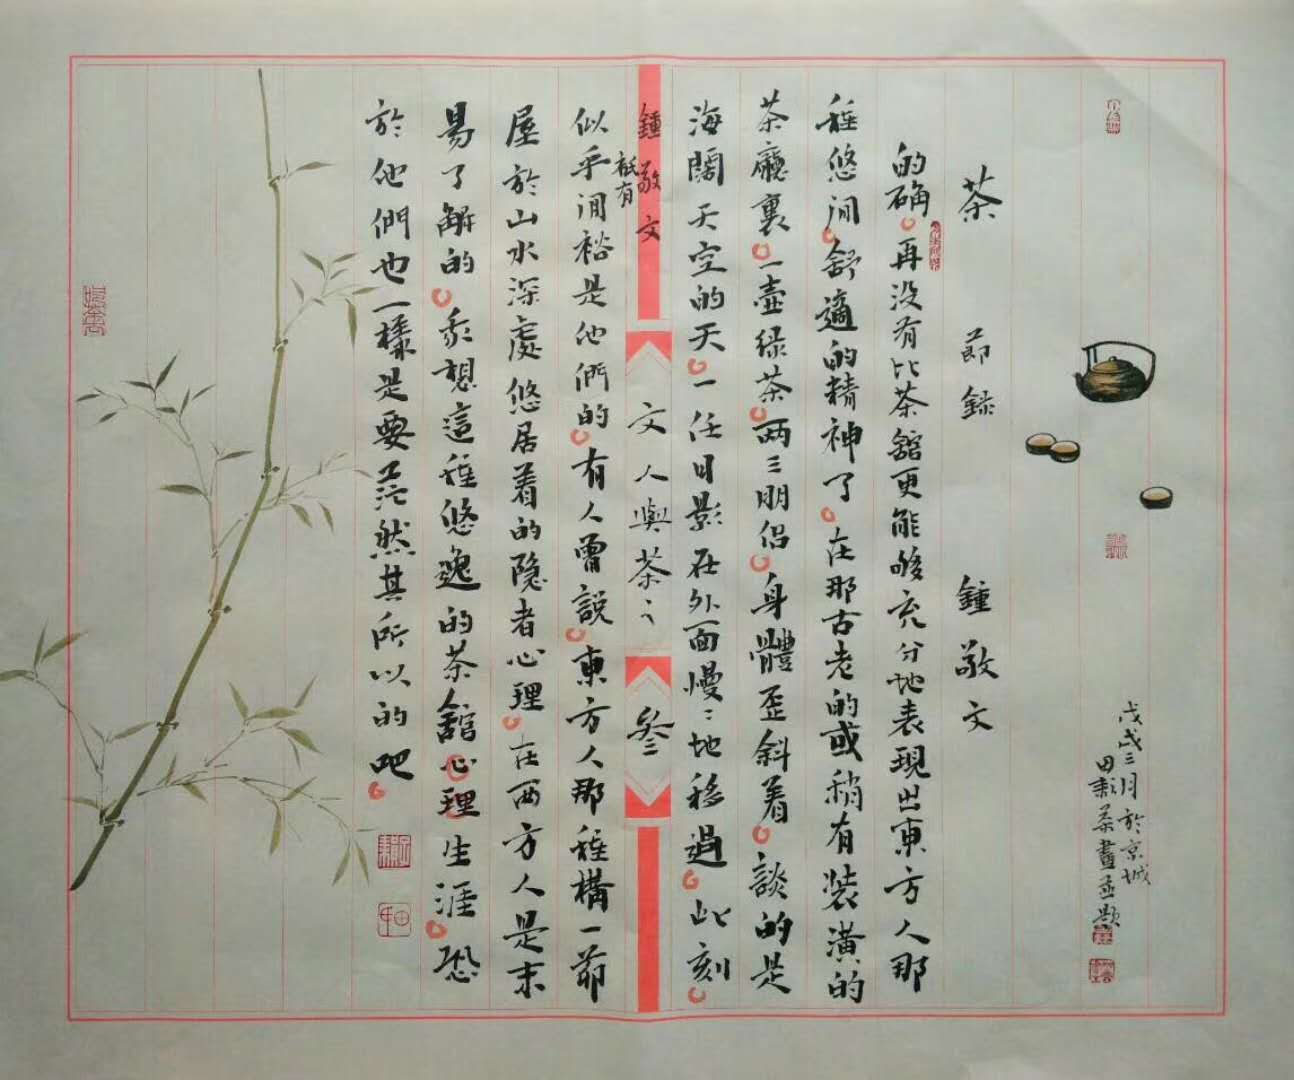 茶 節錄 鍾敬文
的确。再没有比茶舘更能够充分地表現出東方人那
種悠閒。舒適的精神了。在那古老的或稍有装潢的
茶廳裏。一壶绿茶。两三朋侣。身體歪斜着。談的是
海闊天空的天。一任日影在外面慢〻地移過。此刻。
鍾敬文 文人與茶〻 叄
祇有
似乎閒裕是他們的。有人曾説。東方人那種構一茆
屋於山水深處悠居着的隐者心理。在西方人是未
易了解的。我想這種悠逸的茶舘心理生涯。恐
於他們也一樣是要茫然其所以的吧。
戊戌三月於京城
田耘茶畫並題